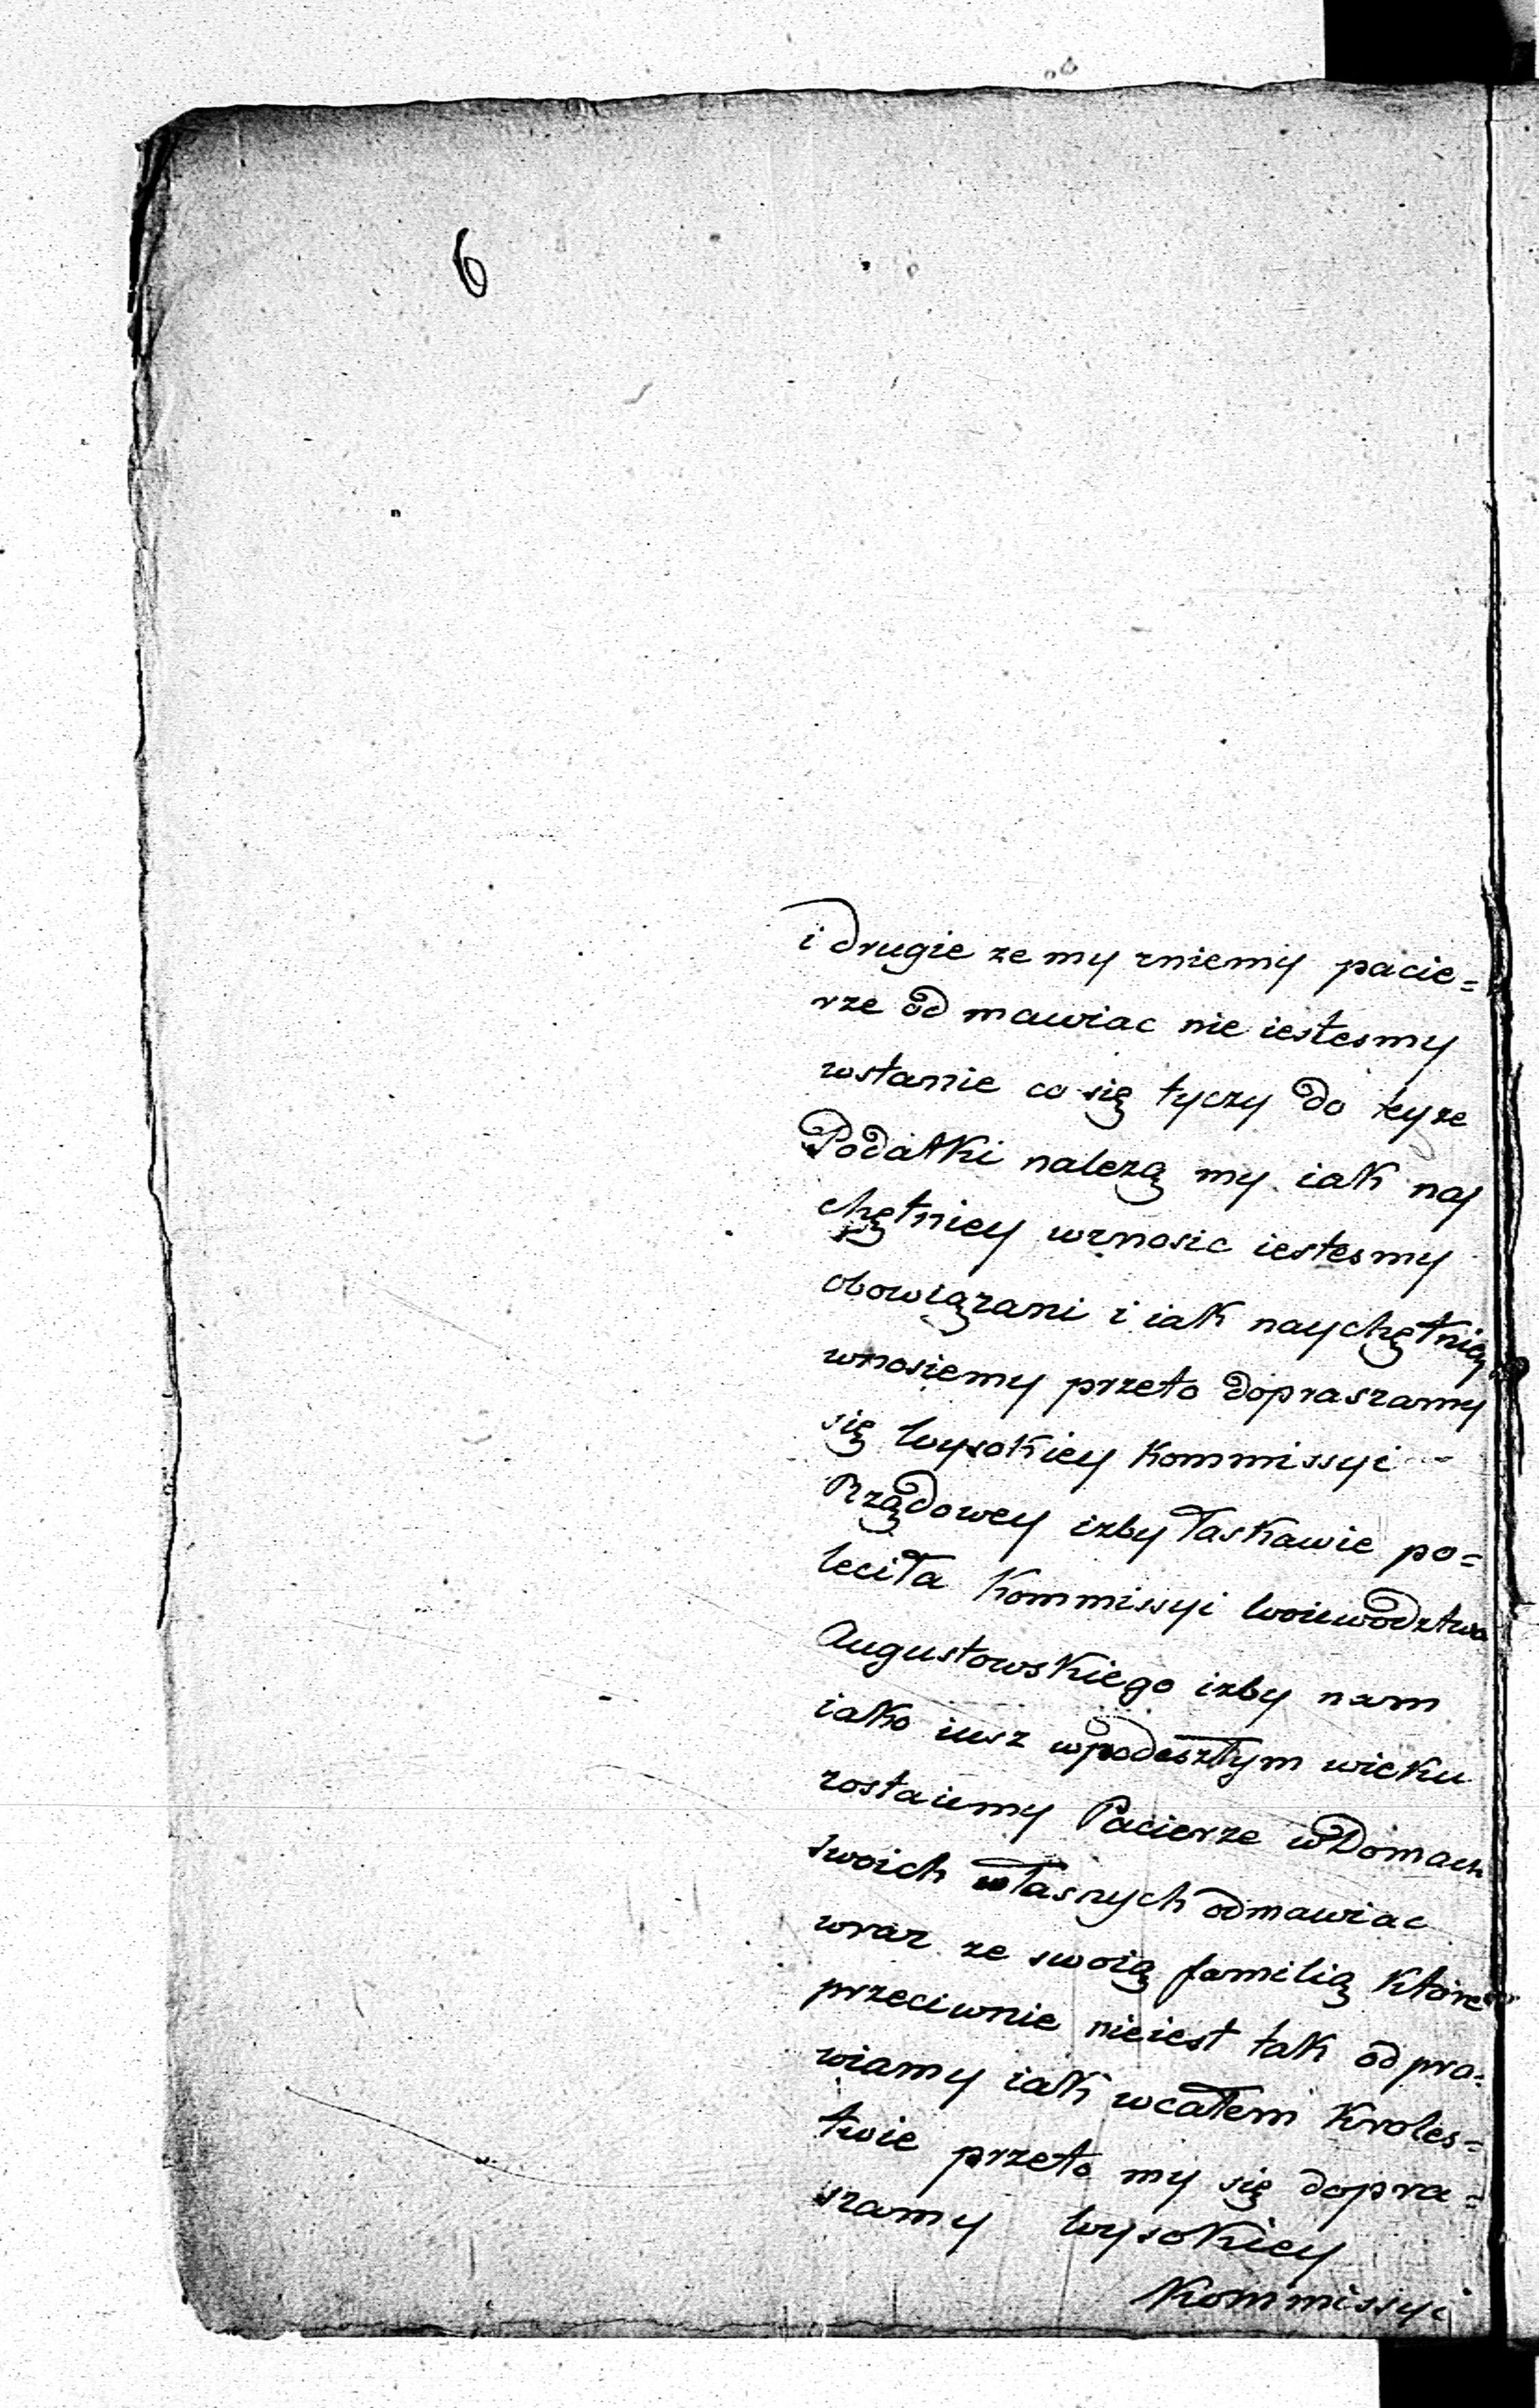 6
i drugie ze my zniemy pacie=
rze od mawiac nie iestesmy
wstanie co się tyczy do teyze
Podatki nalezą my iak nay
chętniey wznosic iestesmy
obowiązani i iak naychętniey
wnosiemy przeto dopraszamy
się Wysokiey Kommissyi
Rządowey izby łaskawie po=
leciła Kommissyi Woiewodztwa
Augustowskiego izby nam
iako iusz wpodeszłym wieku
zostaiemy Pacierze w Domach
swoich własnych odmawiac
wraz ze swoią familią które
przeciwnie nieiest tak odpra=
wiamy iak wcałem Kroles=
twie przeto my się dopra=
szamy Wysokiey
Kommissyi